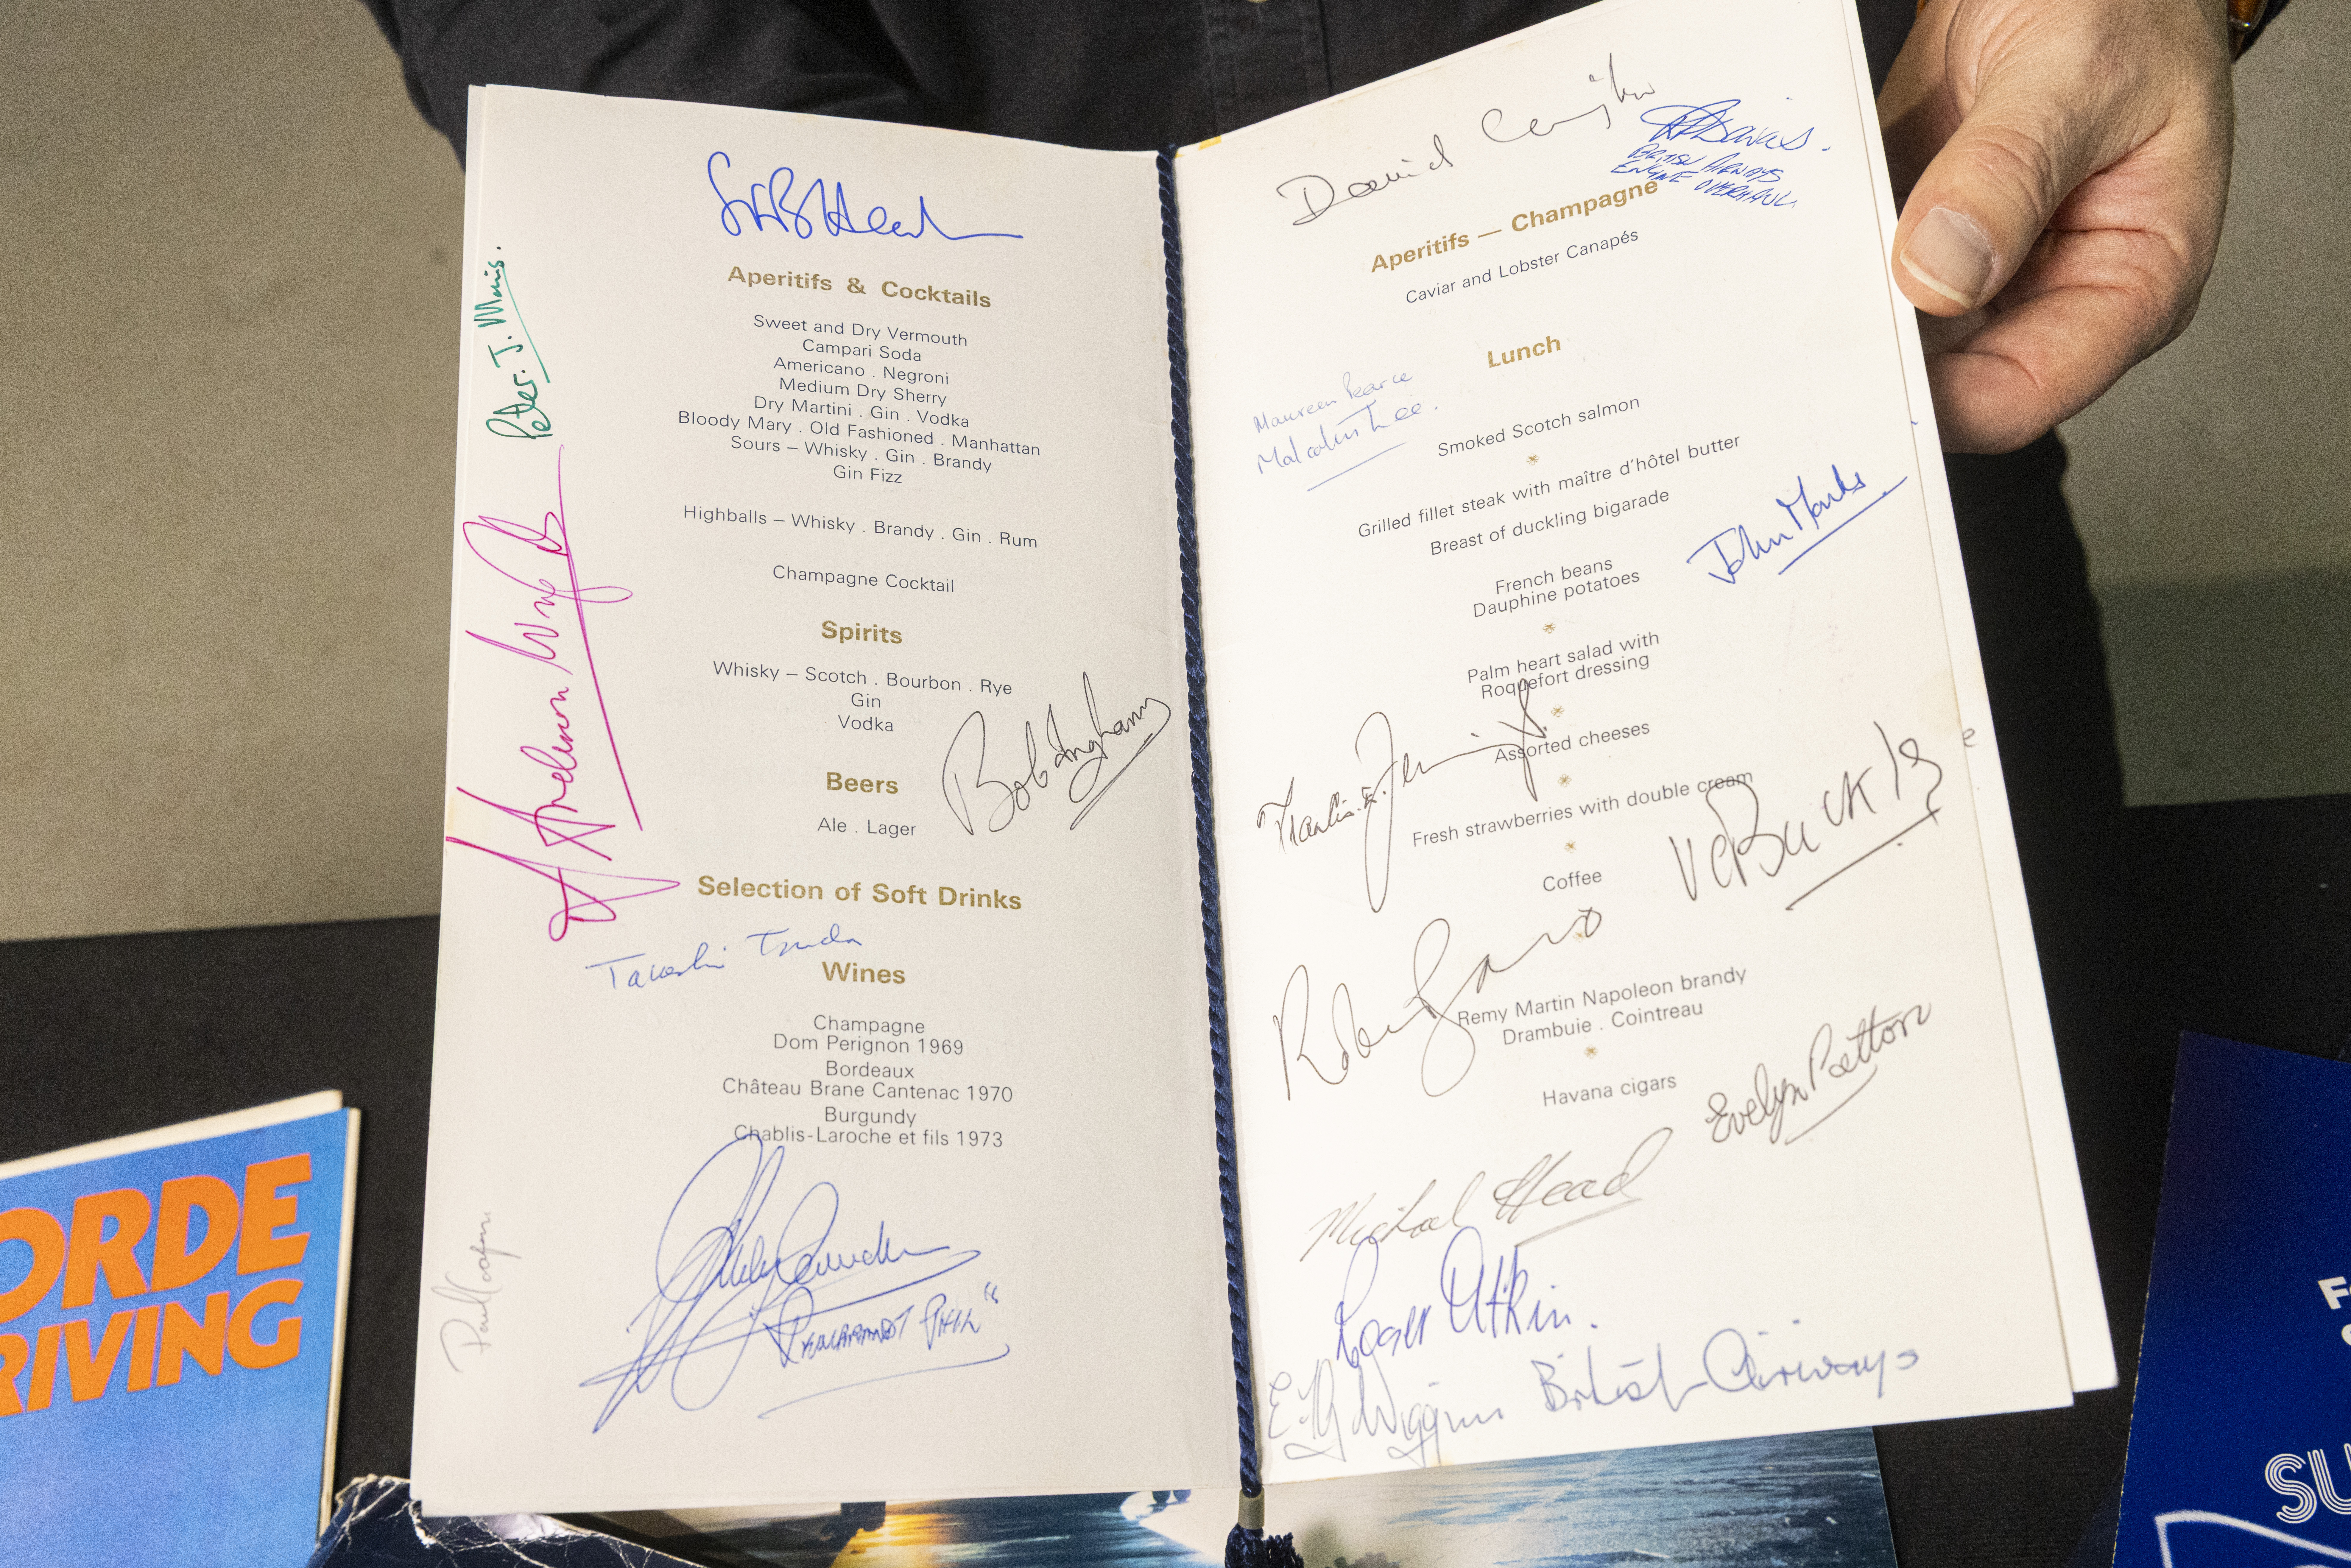 Peter. J. Morris.
Aperitifs & Cocktails
Sweet and Dry Vermouth
Campari Soda
Americano . Negroni
Medium Dry Sherry
Dry Martini . Gin . Vodka
Bloody Mary . Old Fashioned . Manhattan
Sours – Whisky . Gin . Brandy
Gin Fizz
Highballs – Whisky . Brandy . Gin . Rum
Champagne Cocktail
Spirits
Whisky – Scotch . Bourbon . Rye
Gin
Vodka
Bob Ingham
Beers
Ale . Lager
Selection of Soft Drinks
Takeshi Tsuda
Wines
Champagne
Dom Perignon 1969
Bordeaux
Château Brane Cantenac 1970
Burgundy
Chablis-Laroche et fils 1973
David
BRITISH AIRWAYS
ENGINE OVERHAUL.
Aperitifs — Champagne
Caviar and Lobster Canapés
Lunch
Maureen Pearce
Malcolm Lee.
Smoked Scotch salmon
Grilled fillet steak with maître d'hôtel butter
Breast of duckling bigarade
John Marks
French beans
Dauphine potatoes
Palm heart salad with
Roquefort dressing
Assorted cheeses
Fresh strawberries with double cream
Coffee
Remy Martin Napoleon brandy
Drambuie . Cointreau
Havana cigars
Evelyn Patton
Michael Head
Roger Atkin.
Wiggins British Airways
ORDE
RIVING
SU